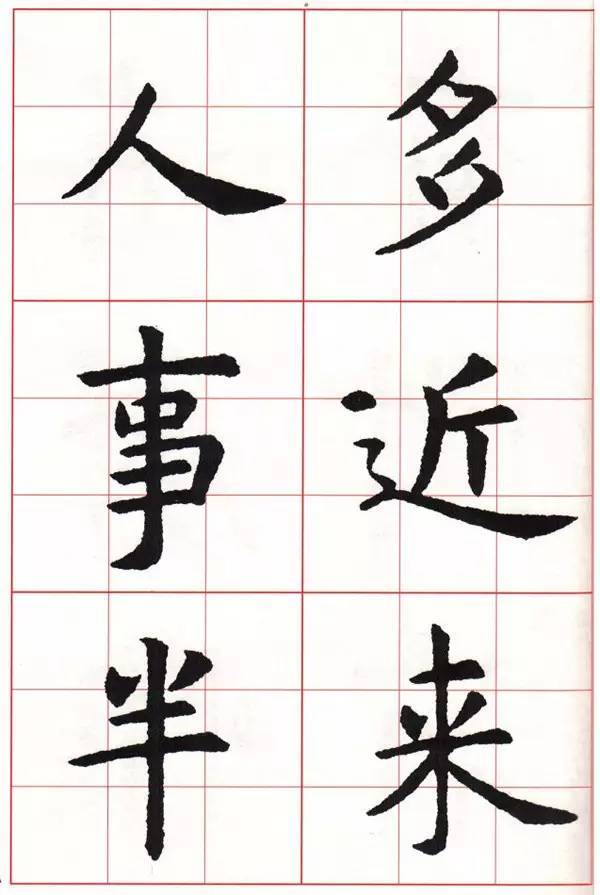 多近来
人事半